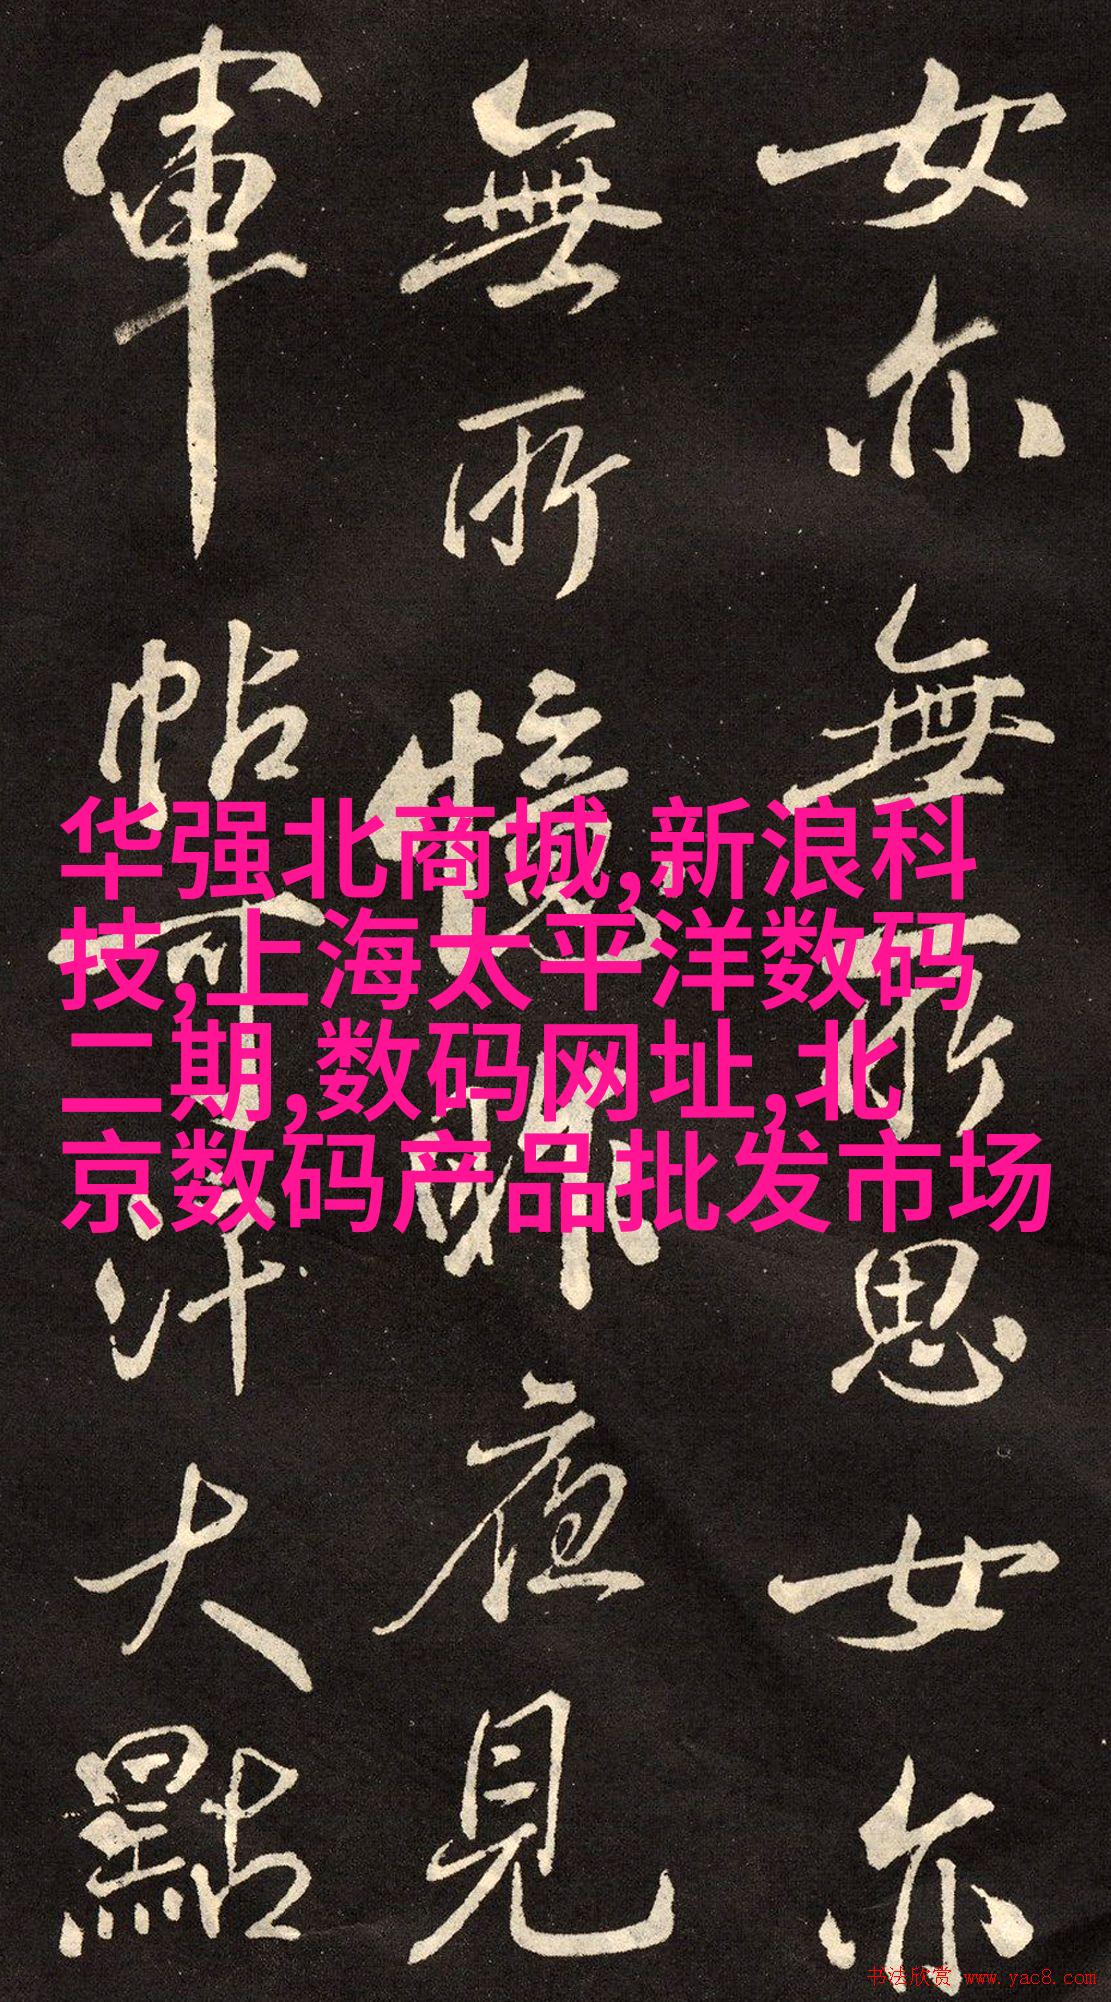 女亦無所思女亦
無所憶昨夜見
軍帖可汗大點
华强北商城,新浪科
技,上海太平洋数码
二期,数码网址,北
京数码产品批发市场
书法欣赏 www.yac8.com